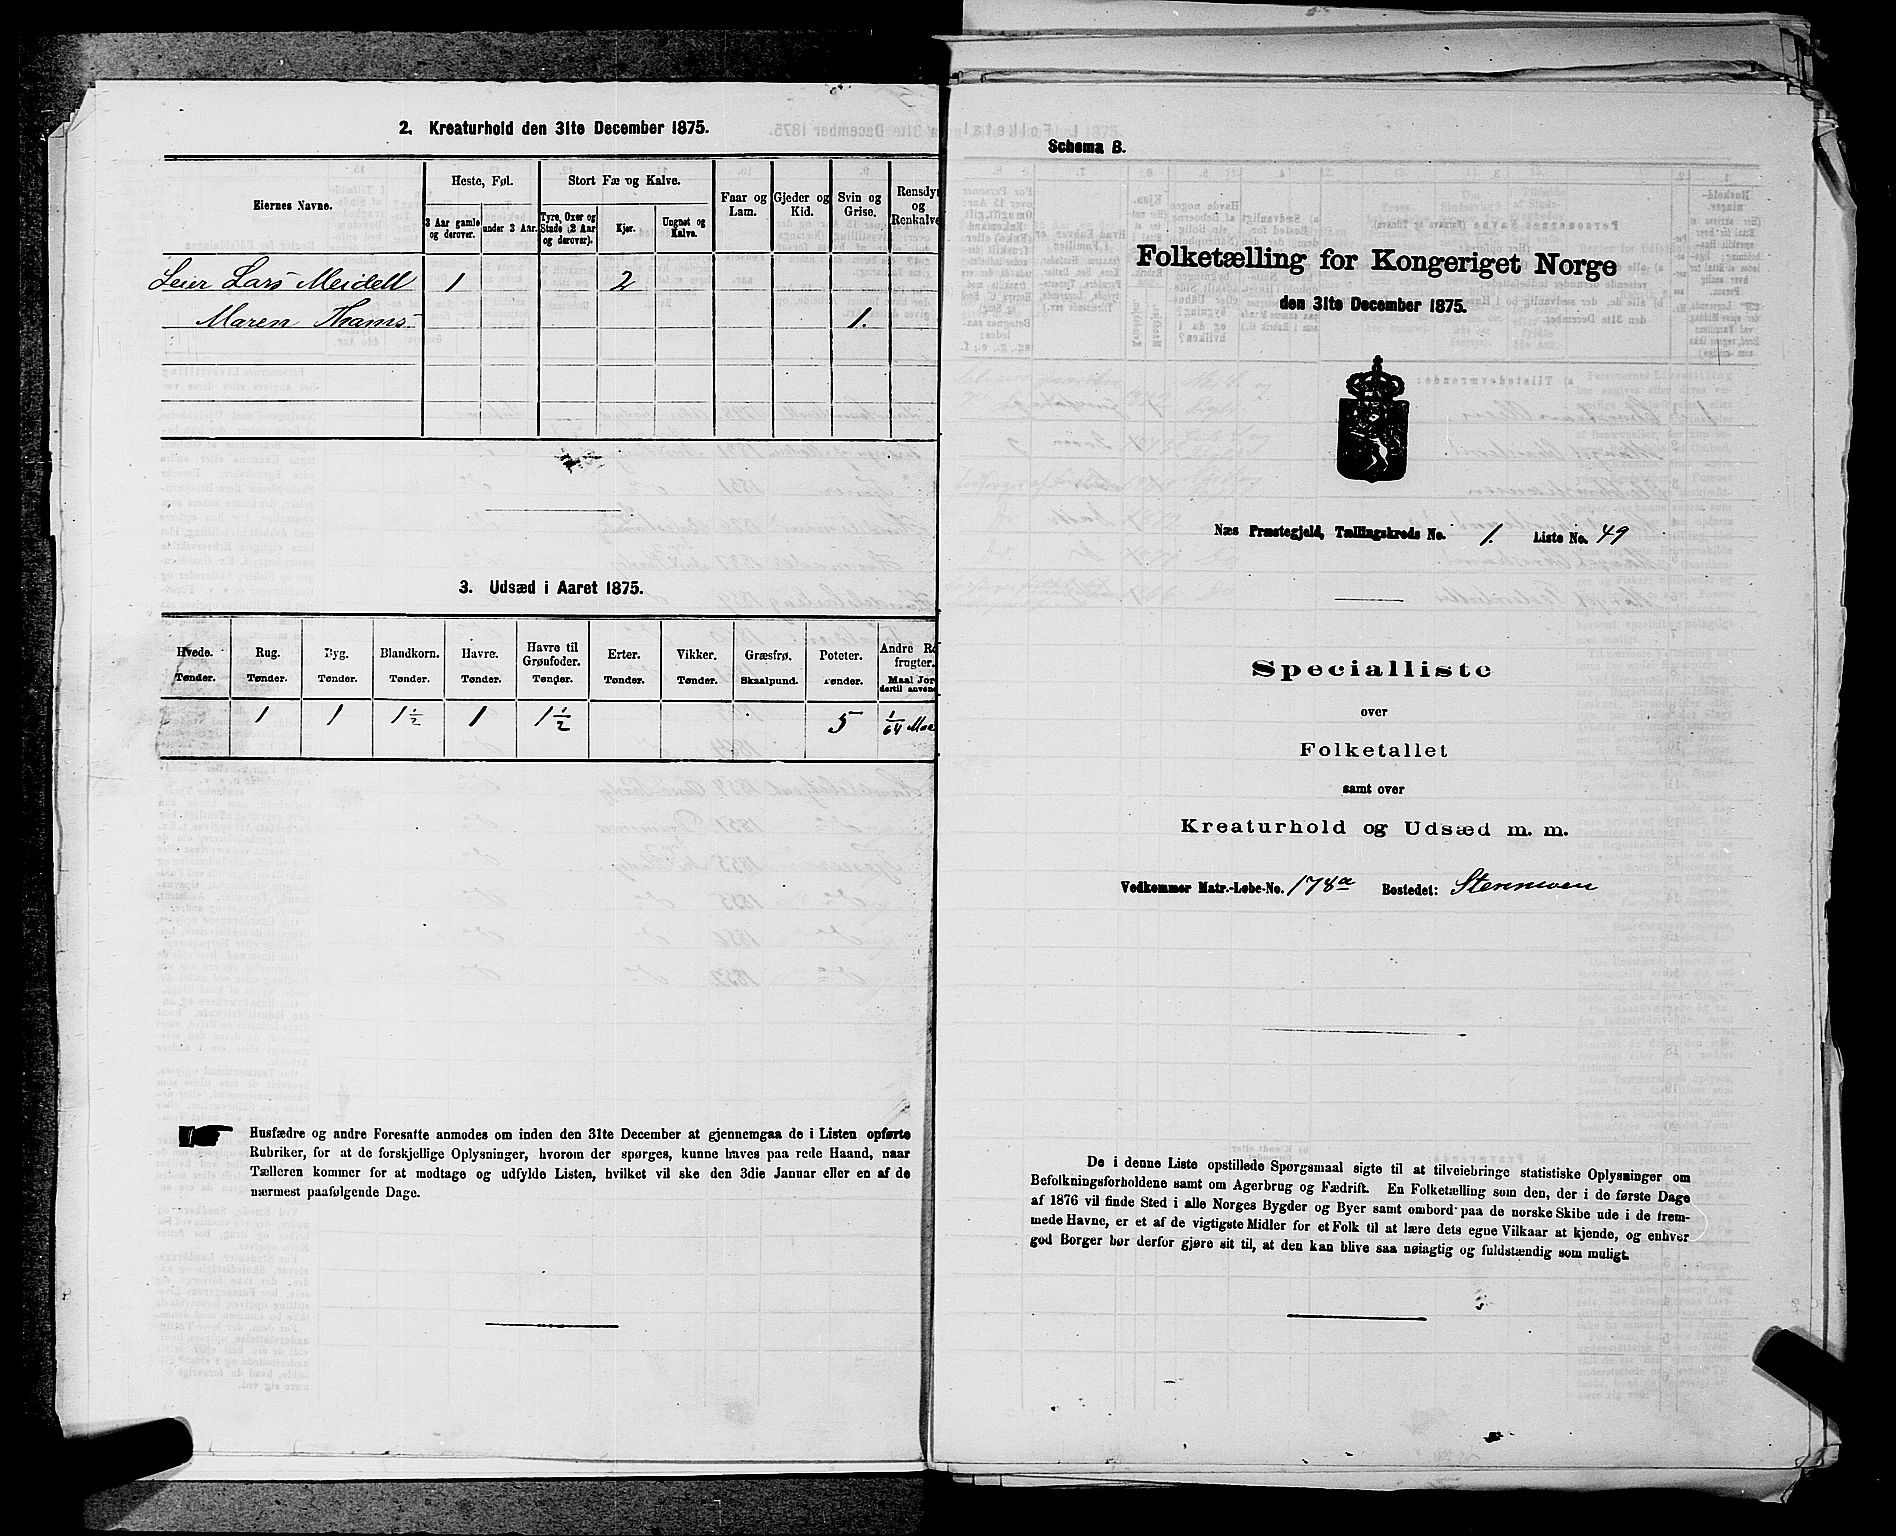 2. Kreaturhold den 31te December 1875.
Eiernes Navne.
Heste, Føl.
3 Aar gamle og derover.
under 3 Aar.
Stort Fæ og Kalve.
Tyre, Oxer og Stude (2 Aar og derover).
Kjør.
Ungnøt og Kalve.
Faar og Lam.
Gjeder og Kid.
Svin og Grise.
Rensdyr og Renkalve
Leier Lars Meidell 1 2
Maren Thams 1.
3. Udsæd i Aaret 1875.
Hvede. Rug. Byg. Blandkorn. Havre. Havre til Grønfoder. Erter. Vikker. Græsfrø. Poteter. Andre Ro frugter.
Tønder. Tønder. Tønder. Tønder. Tønder. Tønder. Tønder. Tønder. Skaalpund. Tønder. Maal Jor dertil anvend
1 1 1 1/2 1 1 1/2 5 1/64 Maa
Husfædre og andre Foresatte anmodes om inden den 31te December at gjennemgaa de i Listen opførte
Rubriker, for at de forskjellige Oplysninger, hvorom der spørges, kunne haves paa rede Haand, naar
Tælleren kommer for at modtage og udfylde Listen, hvilket vil ske den 3die Januar eller en af de
nærmest paafølgende Dage.
Schema B.
Folketælling for Kongeriget Norge
den 31te December 1875.
Næs Præstegjeld, Tællingskreds No. 1. Liste No. 49
Specialliste
over
Folketallet
samt over
Kreaturhold og Udsæd m. m.
Vedkommer Matr.-Løbe-No. 178a Bostedet: Stenmoen
De i denne Liste opstillede Spørgsmaal sigte til at tilveiebringe statistiske Oplysninger om
Befolkningsforholdene samt om Agerbrug og Fædrift. En Folketælling som den, der i de første Dage
af 1876 vil finde Sted i alle Norges Bygder og Byer samt ombord paa de norske Skibe ude i de frem-
mede Havne, er et af de vigtigste Midler for et Folk til at lære dets egne Vilkaar at kjende, og enhver
god Borger bør derfor gjøre sit til, at den kan blive saa nøiagtig og fuldstændig som muligt.